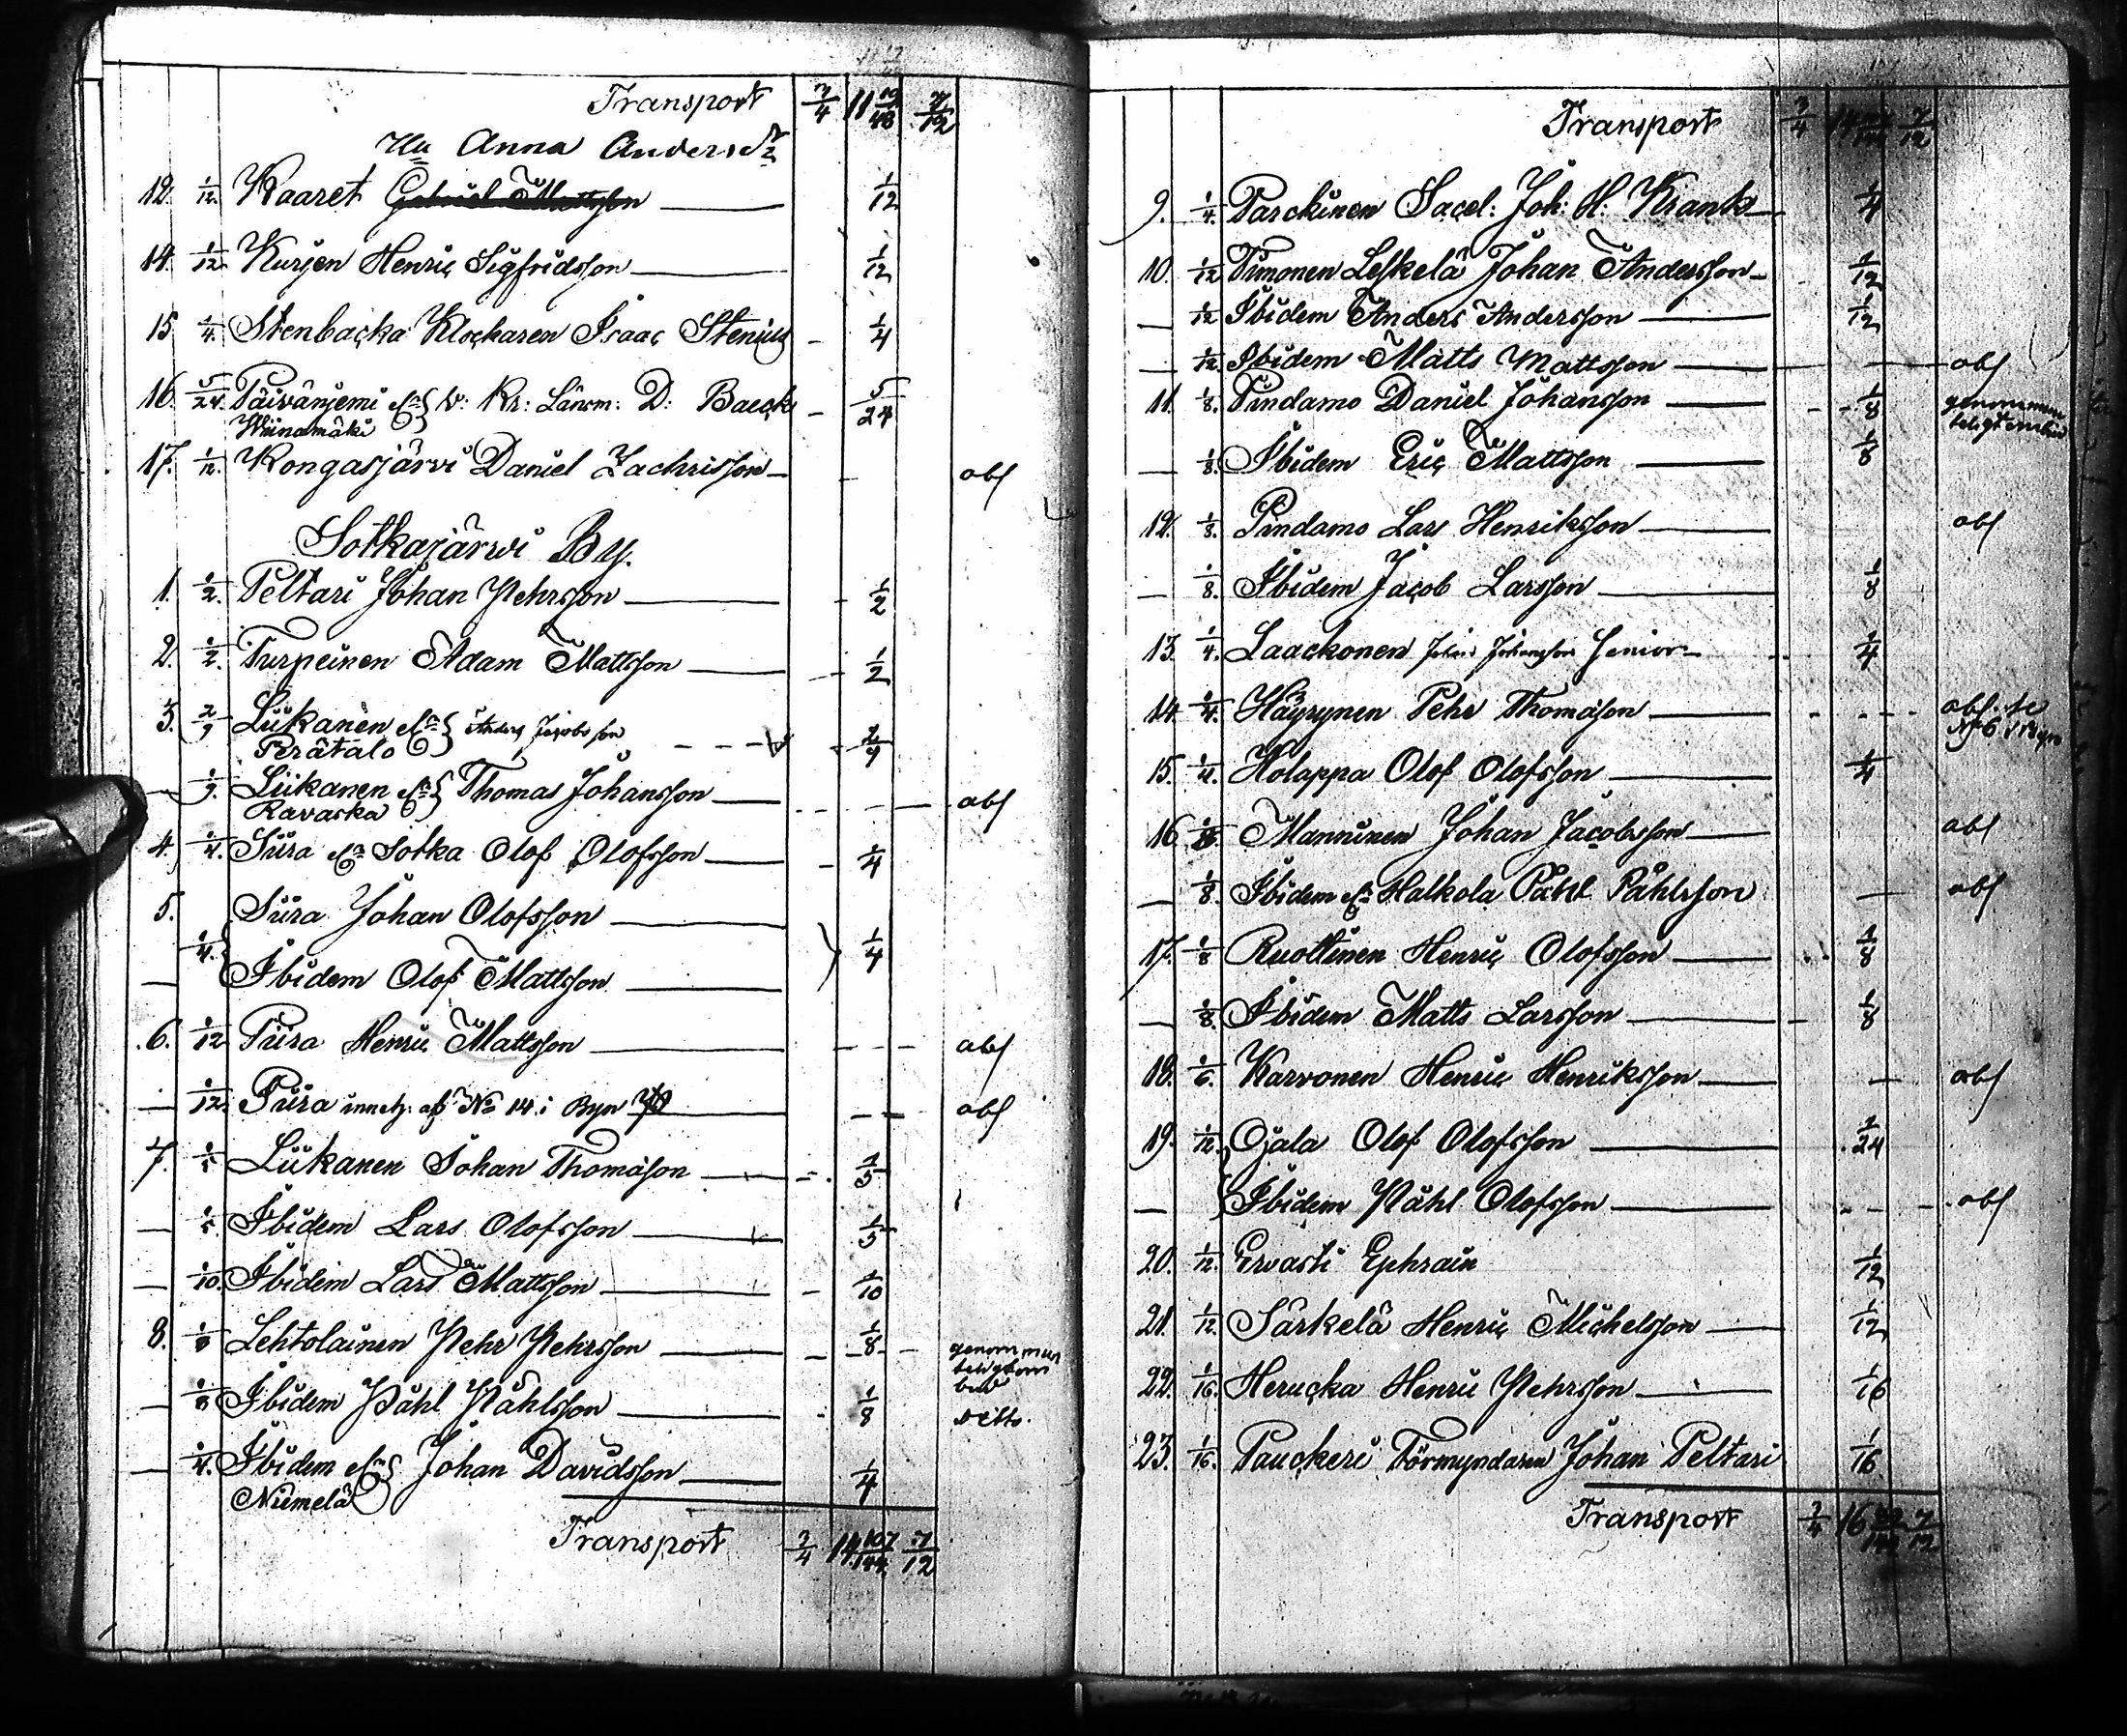 Transport 3/4 11 19/48 7/12
Anna Andersdr
12. 1/12 Kaaret Gabriel Mattsson 1/12
14. 1/12 Kurjen Henric Sigfridsson 1/12
15 1/4 Stenbacka Klockaren Isaac Stenius 1/4
16. 5/24 Päivänjemi D: Backe 5/24
Wiinamäki
17. 1/12 Kongasjärvi Daniel Zachrisson abs
Sotkajärwi By.
1. 1/2 Peltari Johan Pehrsson 1/2
2. 1/2 Turpeinen Adam Mattsson 1/2
3. 2/9 Liikanen Anders Jacobsson 2/9
Perätalo
1/9 Liikanen Thomas Johansson abs
Ravaska
4. 1/4 Siira Sotka Olof Olofsson 1/4
5. Siira Johan Olofsson
1/4 1/4
Ibidem Olof Mattsson
6. 1/12 Piira Henric Mattsson abs
1/12 Piira af No 14 i Byn abs
7. 1/5 Liikanen Johan Thomasson 1/5
1/5 Ibidem Lars Olofsson 1/5
1/10 Ibidem Lars Mattsson 1/10
8. 1/8 Lehtolainen Pehr Pehrsson 1/8 genom
bud
1/8 Ibidem Påhl Påhlsson 1/8 ditto.
1/4 Ibidem Johan Davidsson 1/4
Niemelä
Transport 3/4 14 107/144 7/12
Transport 3/4 14 7/12
9. 1/4 Parckinen Sacel: Joh: H. Krank 1/4
10. 1/12 Timonen Leskelä Johan Andersson 1/12
1/12 Ibidem Anders Andersson 1/12
1/12 Ibidem Matts Mattsson abs
11. 1/8 Pindamo Daniel Johansson 1/8 genom
1/8 Ibidem Eric Mattsson 1/8
12. 1/8 Pindamo Lars Henriksson abs
1/8 Ibidem Jacob Larsson 1/8
13. 1/4 Laackonen Johan Johansson Senior 1/4
14 1/4 Häyrynen Pehr Thomasson abs. se
No 6 i Byn
15. 1/4 Holappa Olof Olofsson 1/4
16 Manninen Johan Jacobsson abs
1/8 Ibidem Halkola Påhl Påhlsson abs
17. 1/8 Ruottinen Henric Olofsson 1/8
1/8 Ibidem Matts Larsson 1/8
18. 1/6 Karvonen Henric Henriksson abs
19. 1/12 Ojala Olof Olofsson 1/24
Ibidem Påhl Olofsson abs
20. 1/12 Ervasti Ephraim 1/12
21. 1/12 Särkelä Henric Michelsson 1/12
22. 1/16 Herucka Henric Pehrsson 1/16
23. 1/16 Pauckeri Förmyndaren Johan Peltari 1/16
Transport 3/4 16 7/12